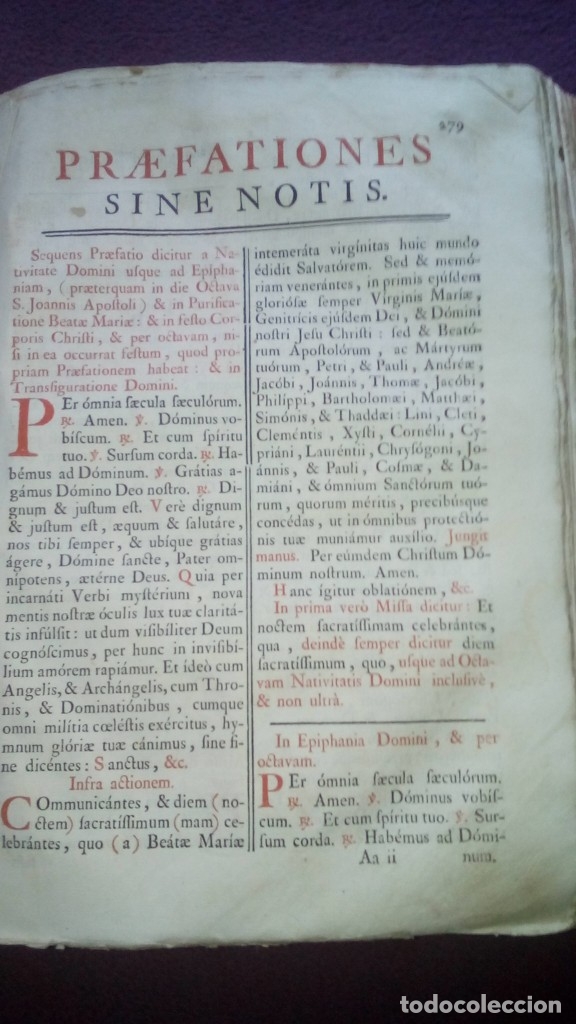 279
PRÆFATIONES
SINE NOTIS.
Sequens Præfatio dicitur a Na-
tivitate Domini uſque ad Epipha-
niam, (præterquam in die Octava
S. Joannis Apoſtoli) & in Purifica-
tione Beatæ Mariæ: & in feſto Cor-
poris Chriſti, & per octavam, ni-
ſi in ea occurrat feſtum, quod pro-
priam Præfationem habeat: & in
Transfiguratione Domini.
PEr ómnia ſæcula ſæculórum.
℟. Amen. ℣. Dóminus vo-
biſcum. ℟. Et cum ſpíritu
tuo. ℣. Surſum corda. ℟. Ha-
bémus ad Dóminum. ℣. Grátias a-
gámus Dómino Deo noſtro. ℟. Di-
gnum & juſtum eſt. Verè dignum
& juſtum eſt, æquum & ſalutáre,
nos tibi ſemper, & ubíque grátias
ágere, Dómine ſancte, Pater om-
nípotens, ætérne Deus. Quia per
incarnáti Verbi myſtérium, nova
mentis noſtræ óculis lux tuæ claritá-
tis infúlſit: ut dum viſibíliter Deum
cognóſcimus, per hunc in inviſibí-
lium amórem rapiámur. Et ídeò cum
Angelis, & Archángelis, cum Thro-
nis, & Dominatiónibus, cumque
omni milítia cœléſtis exércitus, hy-
mnum glóriæ tuæ cánimus, ſine fi-
ne dicéntes: Sanctus, &c.
Infra actionem.
COmmunicántes, & diem (no-
ctem) ſacratíſſimum (mam) ce-
lebrántes, quo (a) Beátæ Maríæ
intemeráta virgínitas huic mundo
édidit Salvatórem. Sed & memó-
riam venerántes, in primis ejúſdem
glorióſæ ſemper Virginis Mariæ,
Genitrícis ejúſdem Dei, & Dómini
noſtri Jeſu Chriſti: ſed & Beató-
rum Apoſtolórum, ac Mártyrum
tuórum, Petri, & Pauli, Andréæ,
Jacóbi, Joánnis, Thomæ, Jacóbi,
Philíppi, Bartholomæi, Matthæi,
Simónis, & Thaddæi: Lini, Cleti,
Cleméntis, Xyſti, Cornélii, Cy-
priáni, Lauréntii, Chryſógoni, Jo-
ánnis, & Pauli, Coſmæ, & Da-
miáni, & ómnium Sanctórum tuó-
rum, quorum méritis, precibúſque
concédas, ut in ómnibus protectió-
nis tuæ muniámur auxílio. Jungit
manus. Per eúmdem Chriſtum Dó-
minum noſtrum. Amen.
Hanc ígitur oblatiónem, &c.
In prima verò Miſſa dicitur: Et
noctem ſacratíſſimam celebrántes,
qua, deindè ſemper dicitur diem
ſacratíſſimum, quo, uſque ad Octa-
vam Nativitatis Domini incluſivè,
& non ultrà.
In Epiphania Domini, & per
octavam.
PEr ómnia ſæcula ſæculórum.
℟. Amen. ℣. Dóminus vobíſ-
cum. ℟. Et cum ſpíritu tuo. ℣. Sur-
ſum corda. ℟. Habémus ad Dómi-
Aa ii num.
todocoleccion